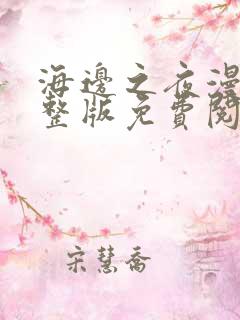 海邊之夜漫
整版免費閱
宋慧喬